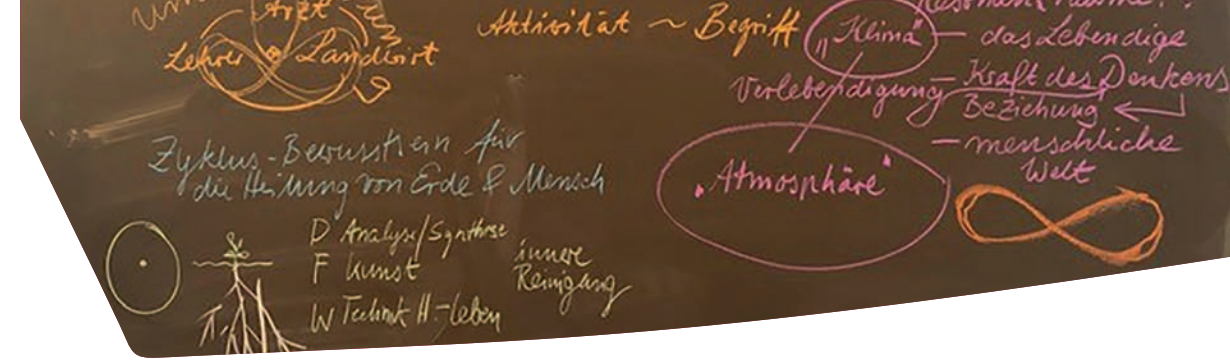 Arzt
Lehrer Landwirt
Aktivität ~ Begriff
"Klima" – das Lebendige
Verlebendigung – Kraft des Denkens
Beziehung ←
– menschliche
Welt
"Atmosphäre"
Zyklus-Bewusstsein für
die Heilung von Erde & Mensch
D Analyse/Synthese
F Kunst
W Technik H.-leben
innere
Reinigung